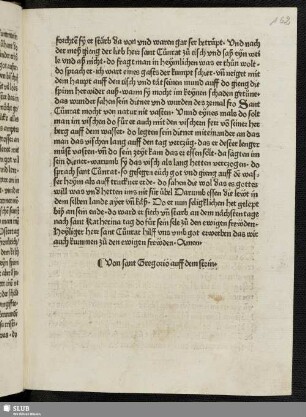 168
forchten sy er sterb da von vnd waren gar ser betrupt · Vnd nach
der meß gieng der lieb herr sant Cůnrat zů tisch vnd saß eyn weil
le vnd aß nicht · do fragt man in heymlichen was er thůn wolt ·
do sprach er · ich wart eines gastes der kumpt schier · vnd neiget mit
dem haupt auff den tisch vnd tät seinen mund auff do gieng die
spinn her wider auß · wann sy mocht im keynen schaden gethůn ·
das wunder sahen sein diener vnd wurden des zemal fro Sant
Cůnrat mocht von natur nit vasten · Vnnd eynes mals do solt
man im vischen do fůr er auch mit den vischern
berg auff dem wasser · do legten sein diener miteinander an das
man das vischen lang auff den tag verzüg · das er dester lenger
můst vasten · vnd do sein zeyt kam das er essen solt · da sagten im
sein diener · warumb sy das visch als lang hetten verzogen · do
sprach sant Cůnrat · so gesegen euch got vnd gieng auff dē was
ser heym als auff truckner erde · do sahen sie wol das es gottes
will was vnd hetten im es nit für übel Darumb essen die leüt in
dem selben lande ayer vnd käß · Do er nun seligklichen het gelept
biß an sein ende · do ward er siech vnd starb an dem nächsten tage
nach sant Katherina tag do fůr sein sele zů den ewigen freüden ·
Heyliger herr sant Cůnrat hilff vns vmb got erwerben das wir
auch kummen zů den ewigen freüden · Amen ·
¶ Von sant Gregorio auff dem stein ·
SLUB
Wir führen Wissen.